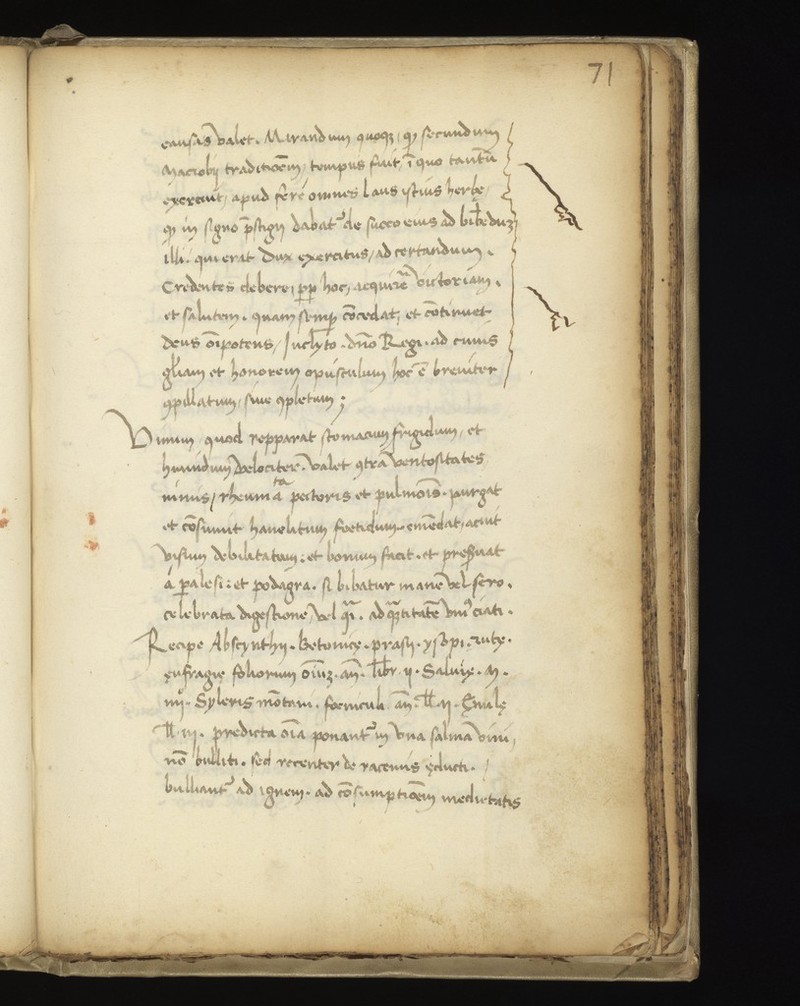 71
causas̄ valet. Mirandum quoq3, qɔ secundum
Macrobij traditioēm, tempus fuit, ī quo tantū
exercuit, apud ferè omnes laus istius herbę,
qɔ in signo p̄stigij dabat᷑ de succo eius ad bibēdu3
illi. qui erat Dux exercitus, ad certandum.
Credentes debere, p̱p̱ hoc, acquirē victoriam.
et salutem. quam semp̱ cōcedat, et cōtinuet
deus oīpotens, Inclyto. dño Regi. ad cuius
gl̄iam et honorem opusculum hoc ē breuiter
ꝯpillatum, siue ꝯpletum;
Vinum, quod repparat stomacum frigidum, et
humidum velociter. valet ꝯtrā ventositates
nimis, rheumata pectoris et pulmoīs. purgat
et cōsumit hanelatum foetidum. emēdat, acuit
visum debilitatam: et bonum facit. et preseruat
á paralesi: et podagra. si bibatur mane vel sero.
celebrata digestione, vel qn̄. ad qn̄titatē vniꝰ ciati.
Recipe Absynthij. Betonicę. prasij. ysopi. rutę.
eufragię foliorum oīu3. an̄. libr. ij. Saluię. M.
iiij. Syleris mōtani. foeniculi. an̄. ll. ij. Enulę
ll. iij. predicta oīa ponant᷑ in vna salma vini,
nō bulliti. sed recenter de racemis educti.
bulliant᷑ ad ignem. ad cōsumptioēm medietatis